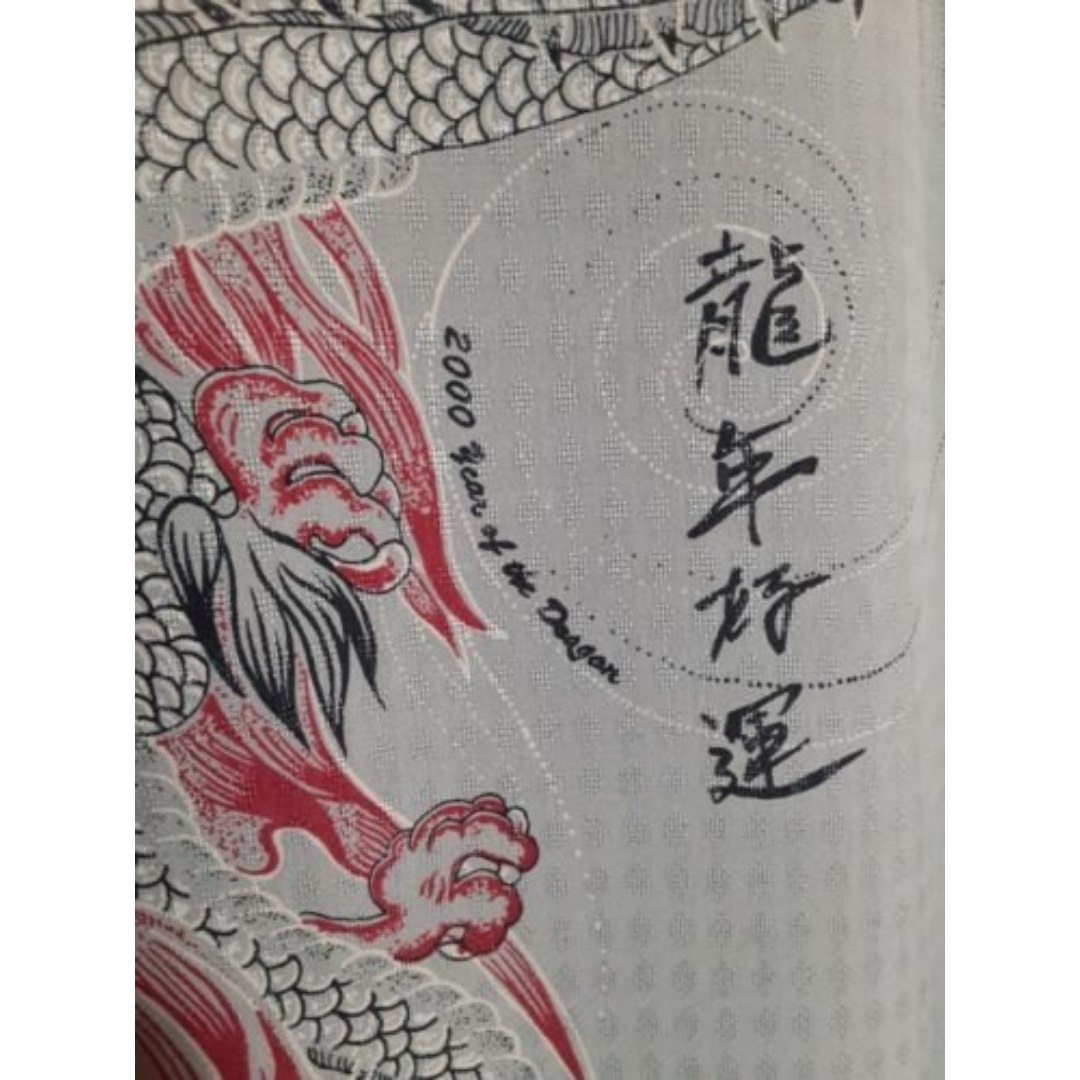 龍年好運
2000 Year of the Dragon